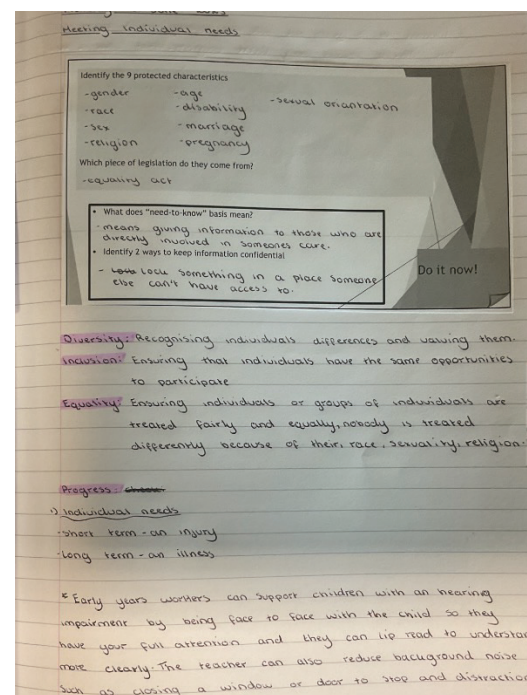 Meeting individual needs
Identify the 9 protected characteristics
-gender -age -sexual oriantation
-race -disability
-sex -marriage
-religion -pregnancy
Which piece of legislation do they come from?
-equality act
• What does "need-to-know" basis mean?
- means giving information to those who are
directly involved in someones care.
• Identify 2 ways to keep information confidential
- Lock something in a place someone
else can't have access to.
Do it now!
Diversity: Recognising individuals differences and valuing them.
Inclusion: Ensuring that individuals have the same opportunities
to participate
Equality: Ensuring individuals or groups of individuals are
treated fairly and equally, nobody is treated
differently because of their, race, sexuality, religion.
Progress:
1) Individual needs
-short term - an injury
-Long term - an illness
* Early years workers can support children with an hearing
impairment by being face to face with the child so they
have your full attention and they can lip read to understan
more clearly. The teacher can also reduce background noise
such as closing a window or door to stop and distraction